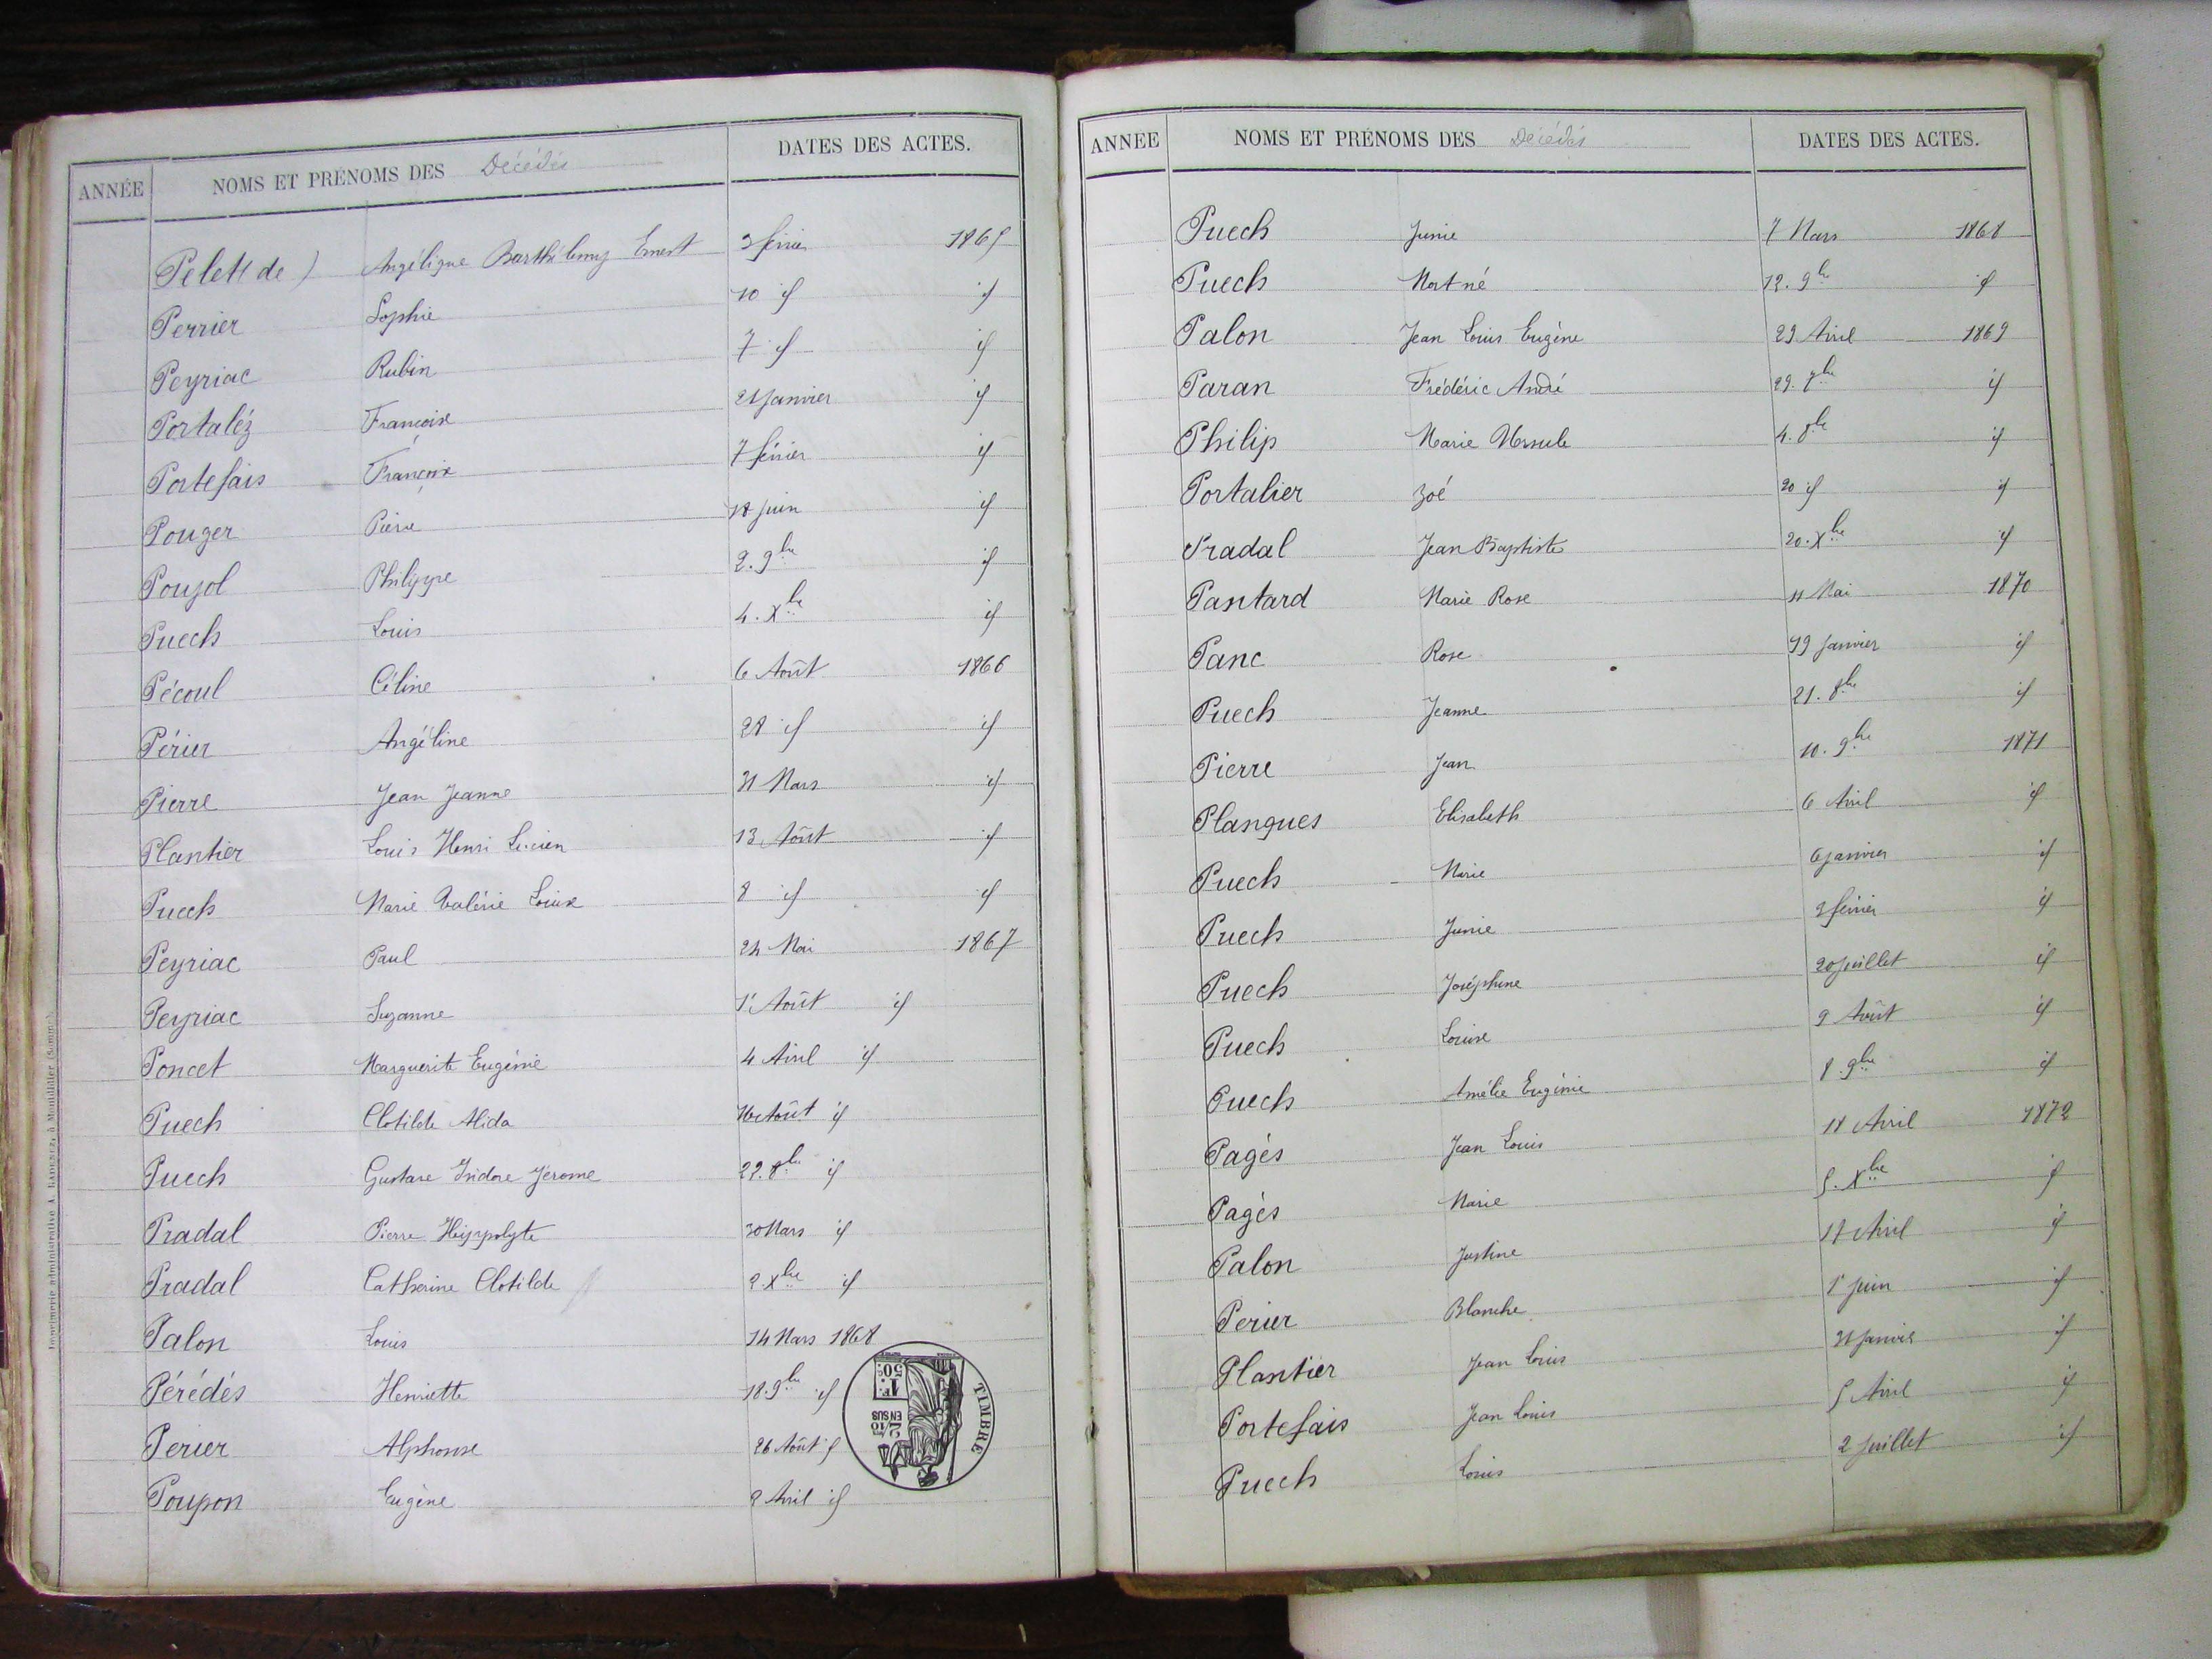 ANNÉE NOMS ET PRÉNOMS DES Décédés DATES DES ACTES.
Pelet (de) Angélique Barthélemy Ernest 3 février 1865
Perrier Sophie 10 id id
Peyriac Rubin 7 id id
Portaléz Françoise 21 Janvier id
Portefais Françoise 7 février id
Pouger Pierre 18 juin id
Poujol Philippe 2. 9bre id
Puech Louis 4. Xbre id
Pécoul Céline 6 Août 1866
Périer Angéline 28 id id
Pierre Jean Jeanne 31 Mars id
Plantier Louis Henri Lucien 13 Août id
Puech Marie Valérie Louise 8 id id
Peyriac Paul 24 Mai 1867
Peyriac Suzanne 1er Août id
Poncet Marguerite Eugénie 4 Avril id
Puech Clotilde Alida 16 Août id
Puech Gustave Isidore Jérome 22. 8bre id
Pradal Pierre Hippolyte 30 Mars id
Pradal Catherine Clotilde 2. Xbre id
Palon Louis 14 Mars 1868
Pérédés Henriette 18. 9bre id
Perier Alphonse 26 Août id
Poupon Eugène 2 Avril id
TIMBRE
1F. 50c.
2/10 EN SUS
ANNEE NOMS ET PRÉNOMS DES Décédés DATES DES ACTES.
Puech Junie 7 Mars 1868
Puech Mort né 12. 9bre id
Palon Jean Louis Eugène 23 Avril 1869
Paran Frédéric André 29. 7bre id
Philip Marie Ursule 4. 8bre id
Portalier Zoé 20 id id
Pradal Jean Baptiste 20. Xbre id
Pantard Marie Rose 11 Mai 1870
Panc Rose 19 Janvier id
Puech Jeanne 21. 8bre id
Pierre Jean 10. 9bre 1871
Planques Elisabeth 6 Avril id
Puech Marie 6 janvier id
Puech Junie 3 février id
Puech Joséphine 20 juillet id
Puech Louise 9 Août id
Puech Amélie Eugénie 8. 9bre id
Pagés Jean Louis 18 Avril 1872
Pagés Marie 5. Xbre id
Palon Justine 17 Avril id
Perier Blanche 1er Juin id
Plantier Jean Louis 31 Janvier id
Portefais Jean Louis 5 Avril id
Puech Louis 2 Juillet id